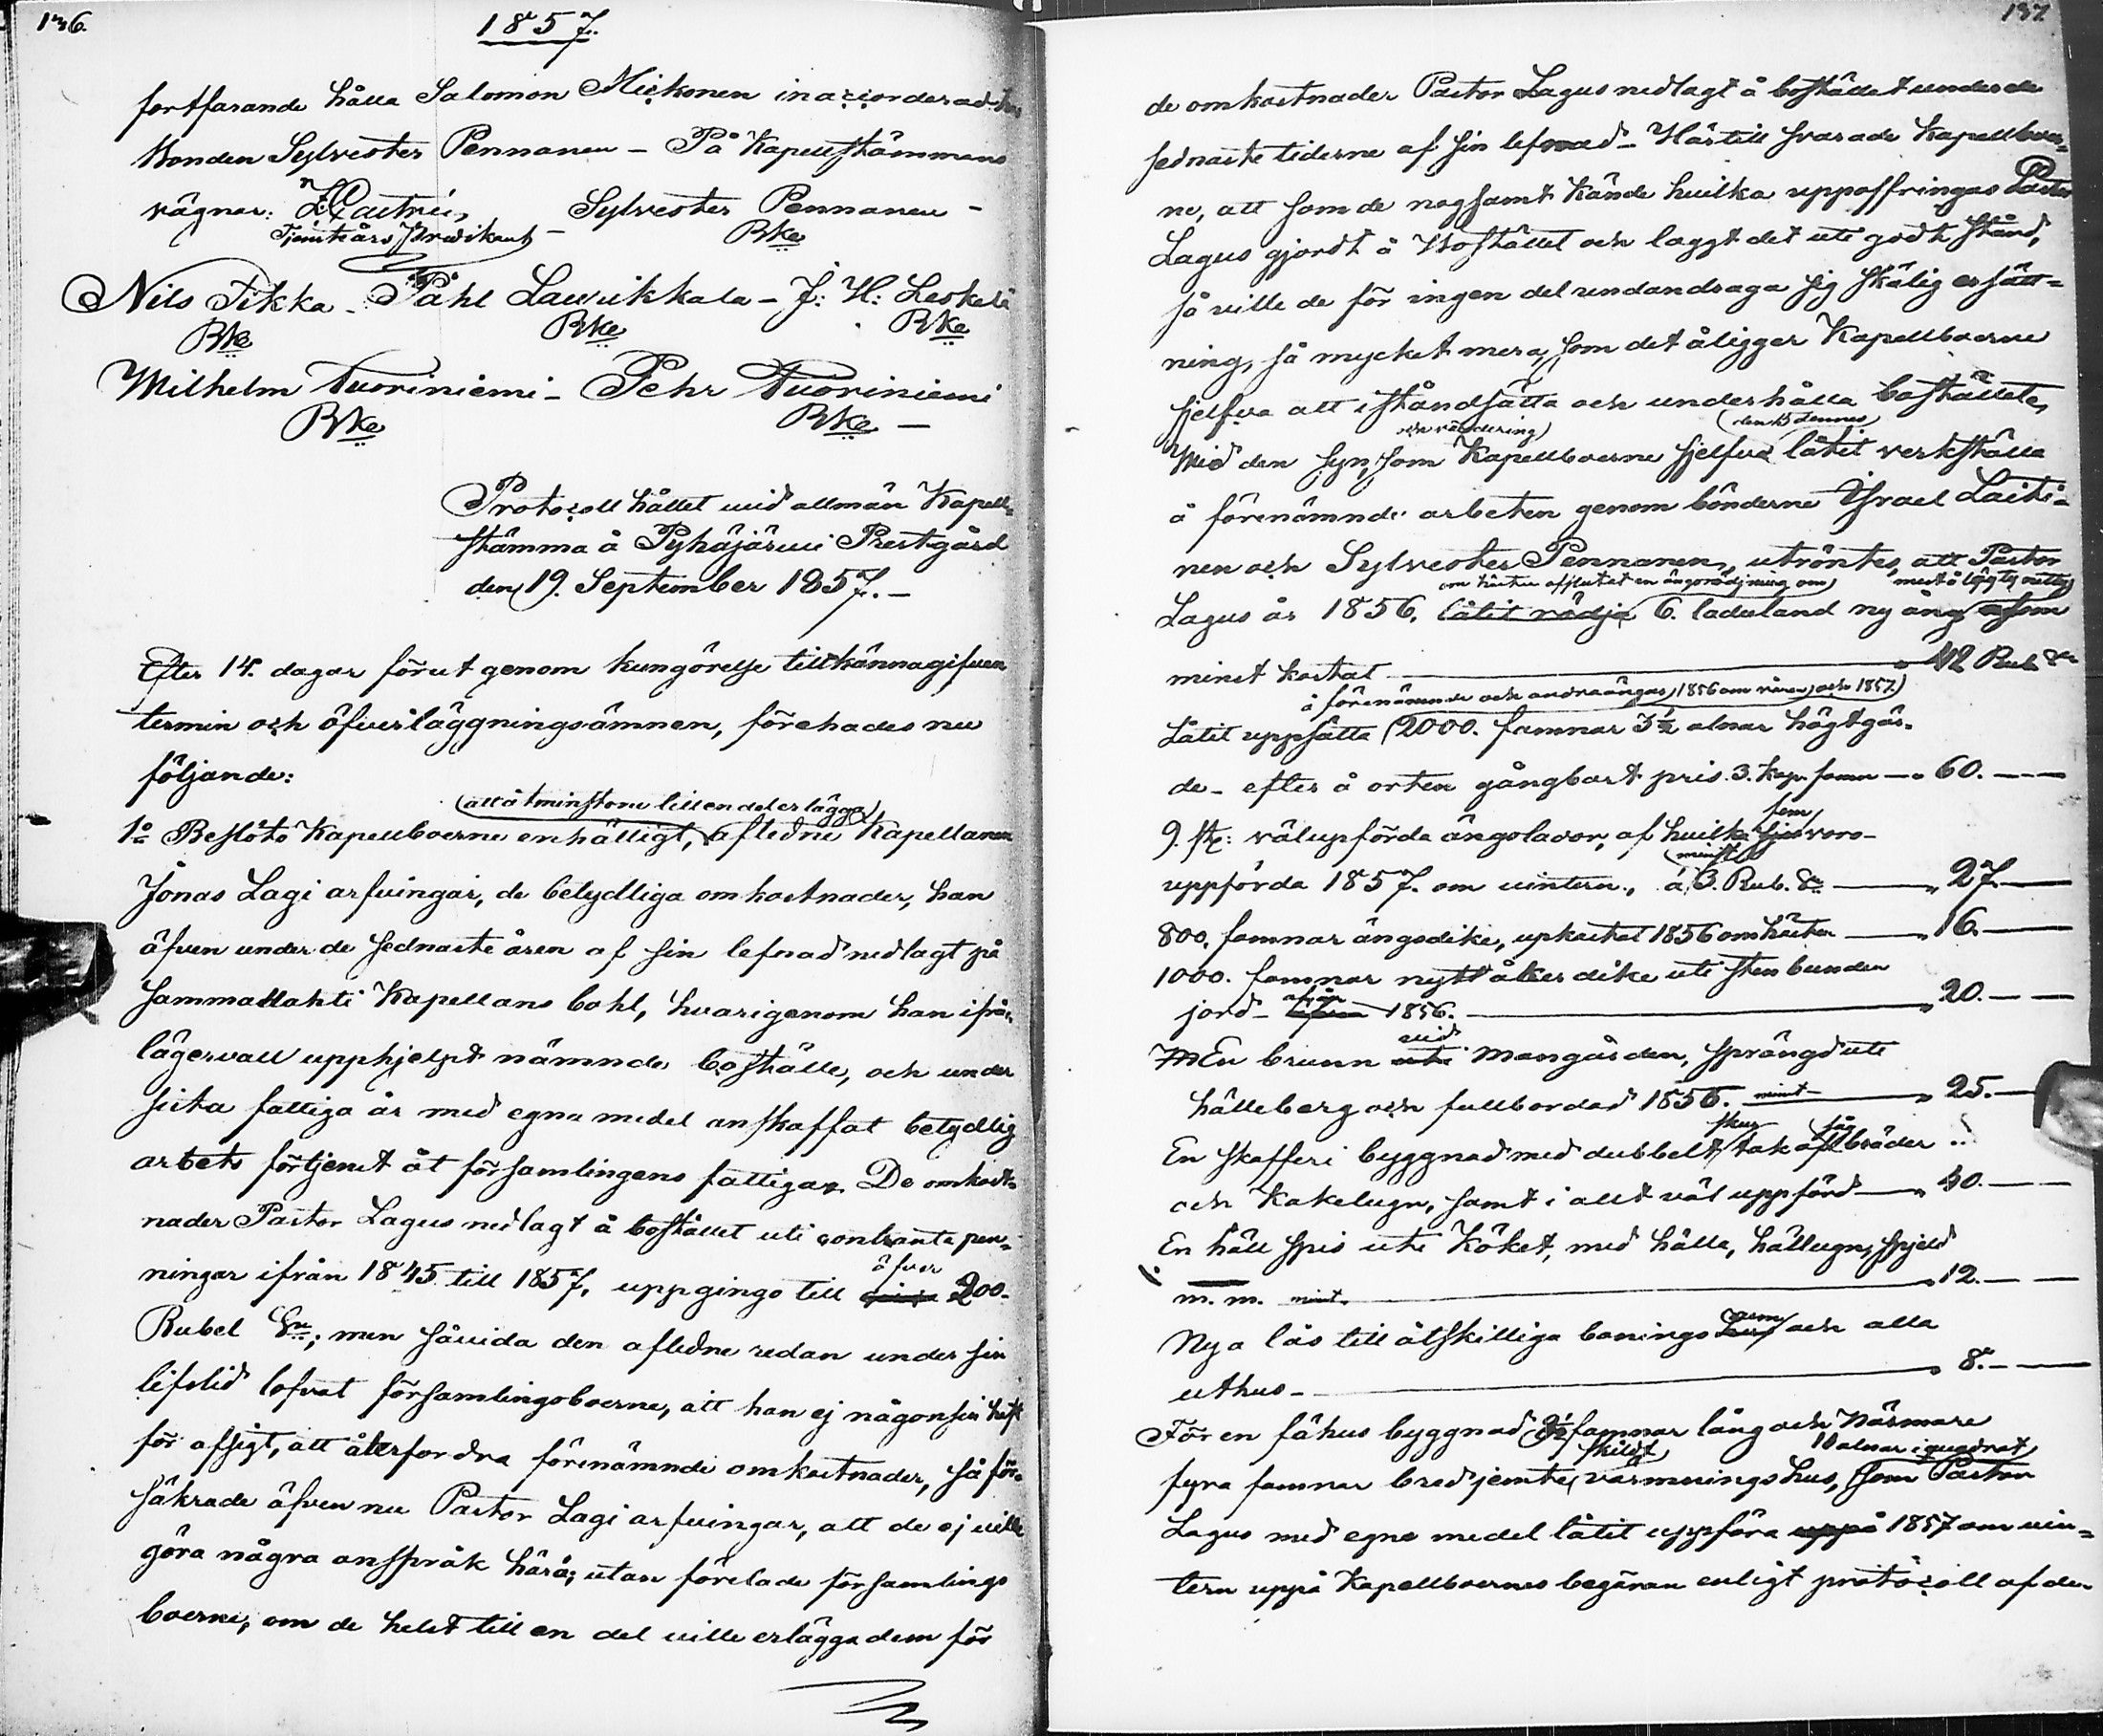 136.
1857.
fortfarande hålla Salomon Miekonen inaccorderad hos
Bonden Sylvester Pennanen – På Kapellstämmans
vägnar: Z Castrén, – Sylvester Pennanen –
Tjenstförs Predikant Bke
Nils Tikka – Påhl Lauvikkala – J: H: Leskelä
Bke Bke Bke
Wilhelm Tuoriniemi – Pehr Tuoriniemi
Bke Bke –
Protocoll hållet vid allmän Kapell-
stämma å Pyhäjärvi Prestgård
den 19. September 1857. –
Efter 14. dagar förut genom kungörelse tillkännagifven
termin och öfverläggningsämnen, förehades nu
följande:
(att åtminstone till en del erlägga)
1o Beslöto Kapellboerne enhälligt, aflednе Kapellanen
Jonas Lagi arfvingar, de betydliga omkostnader, han
äfven under de sednaste åren af sin lefnad nedlagt på
Sammallahti Kapellans bohl, hvarigenom han ifrån
lägervall upphjelpt nämnde boställe, och under
sista fattiga år med egna medel anskaffat betydlig
arbets förtjenst åt församlingens fattiga. De omkost-
nader Pastor Lagus nedlagt å bostället uti contanta pen-
ningar ifrån 1845 till 1857, uppgingo till öfver 200
Rubel Sr; men såvida den aflednе redan under sin
lifstid lofvat församlingsboerne, att han ej någonsin haft
för afsigt, att återfordra förenämnde omkostnader, så för-
säkrade äfven nu Pastor Lagi arfvingar, att de ej ville
göra några anspråk härå, utan förelade församlings
boerne, om de helst till en del ville erlägga dem för
137
de omkostnader Pastor Lagus nedlagt å bostället under de
sednaste tiderne af sin lefnad – Härtill svarade Kapellboer-
ne, att som de nogsamt kände hvilka uppoffringar Pastor
Lagus gjordt å Bostället och laggt det uti godt stånd,
så ville de för ingen del undandraga sig skälig ersätt-
ning, så mycket mera, som det åligger Kapellboerne
sjelfva att iståndsätta och underhålla bostället,
och värdering) (den 15 dennes)
Wid den syn, som Kapellboerne sjelfva låtit verkställa
å förenämnde arbeten genom bönderne Israel Laiti-
nen och Sylvester Pennanen, utröntes, att Pastor
om hösten afslutat en ängsrödjning om) mest å lågty rutty
Lagus år 1856, låtit rödja 6. laduland ny äng som
minst kostat – 42 Rub Sr
å förenämnde och andra ängar, 1856 om våren, och 1857)
Låtit uppsätta 2000. famnar 3½ alnar högt gär-
de – efter å orten gångbart pris. 3. kap. famn – 60. –
9. st: väl uppförda ängslador, af hvilka fem voro –
uppförda 1857. om vintern, á minst 3. Rub. Sr – 27. –
800. famnar ängsdike, upkastat 1856 om hösten – 16. –
1000. famnar nytt åker dike uti sten bunden
jord – 1856. – 20. –
En brunn vid Mangården, sprängd uti
hälleberg och fullbordad 1856. minst – 25. –
En skafferi byggnad med dubbelt tak af såg bräder
och Kakelugn, samt i allt väl uppförd – 40. –
En häll spis uti Köket, med hälla, hällugn, spjeld
m. m. minst – 12. –
Nya lås till åtskilliga bonings rum och alla
uthus – 8. –
För en fähus byggnad famnar lång och närmare
skildt 10 alnar i quadrat
fyra famnar bred jemte varmnings hus, som Pastor
Lagus med egna medel låtit uppföra uppå 1857 om vin-
tern uppå Kapellboernes begäran enligt protocoll af den